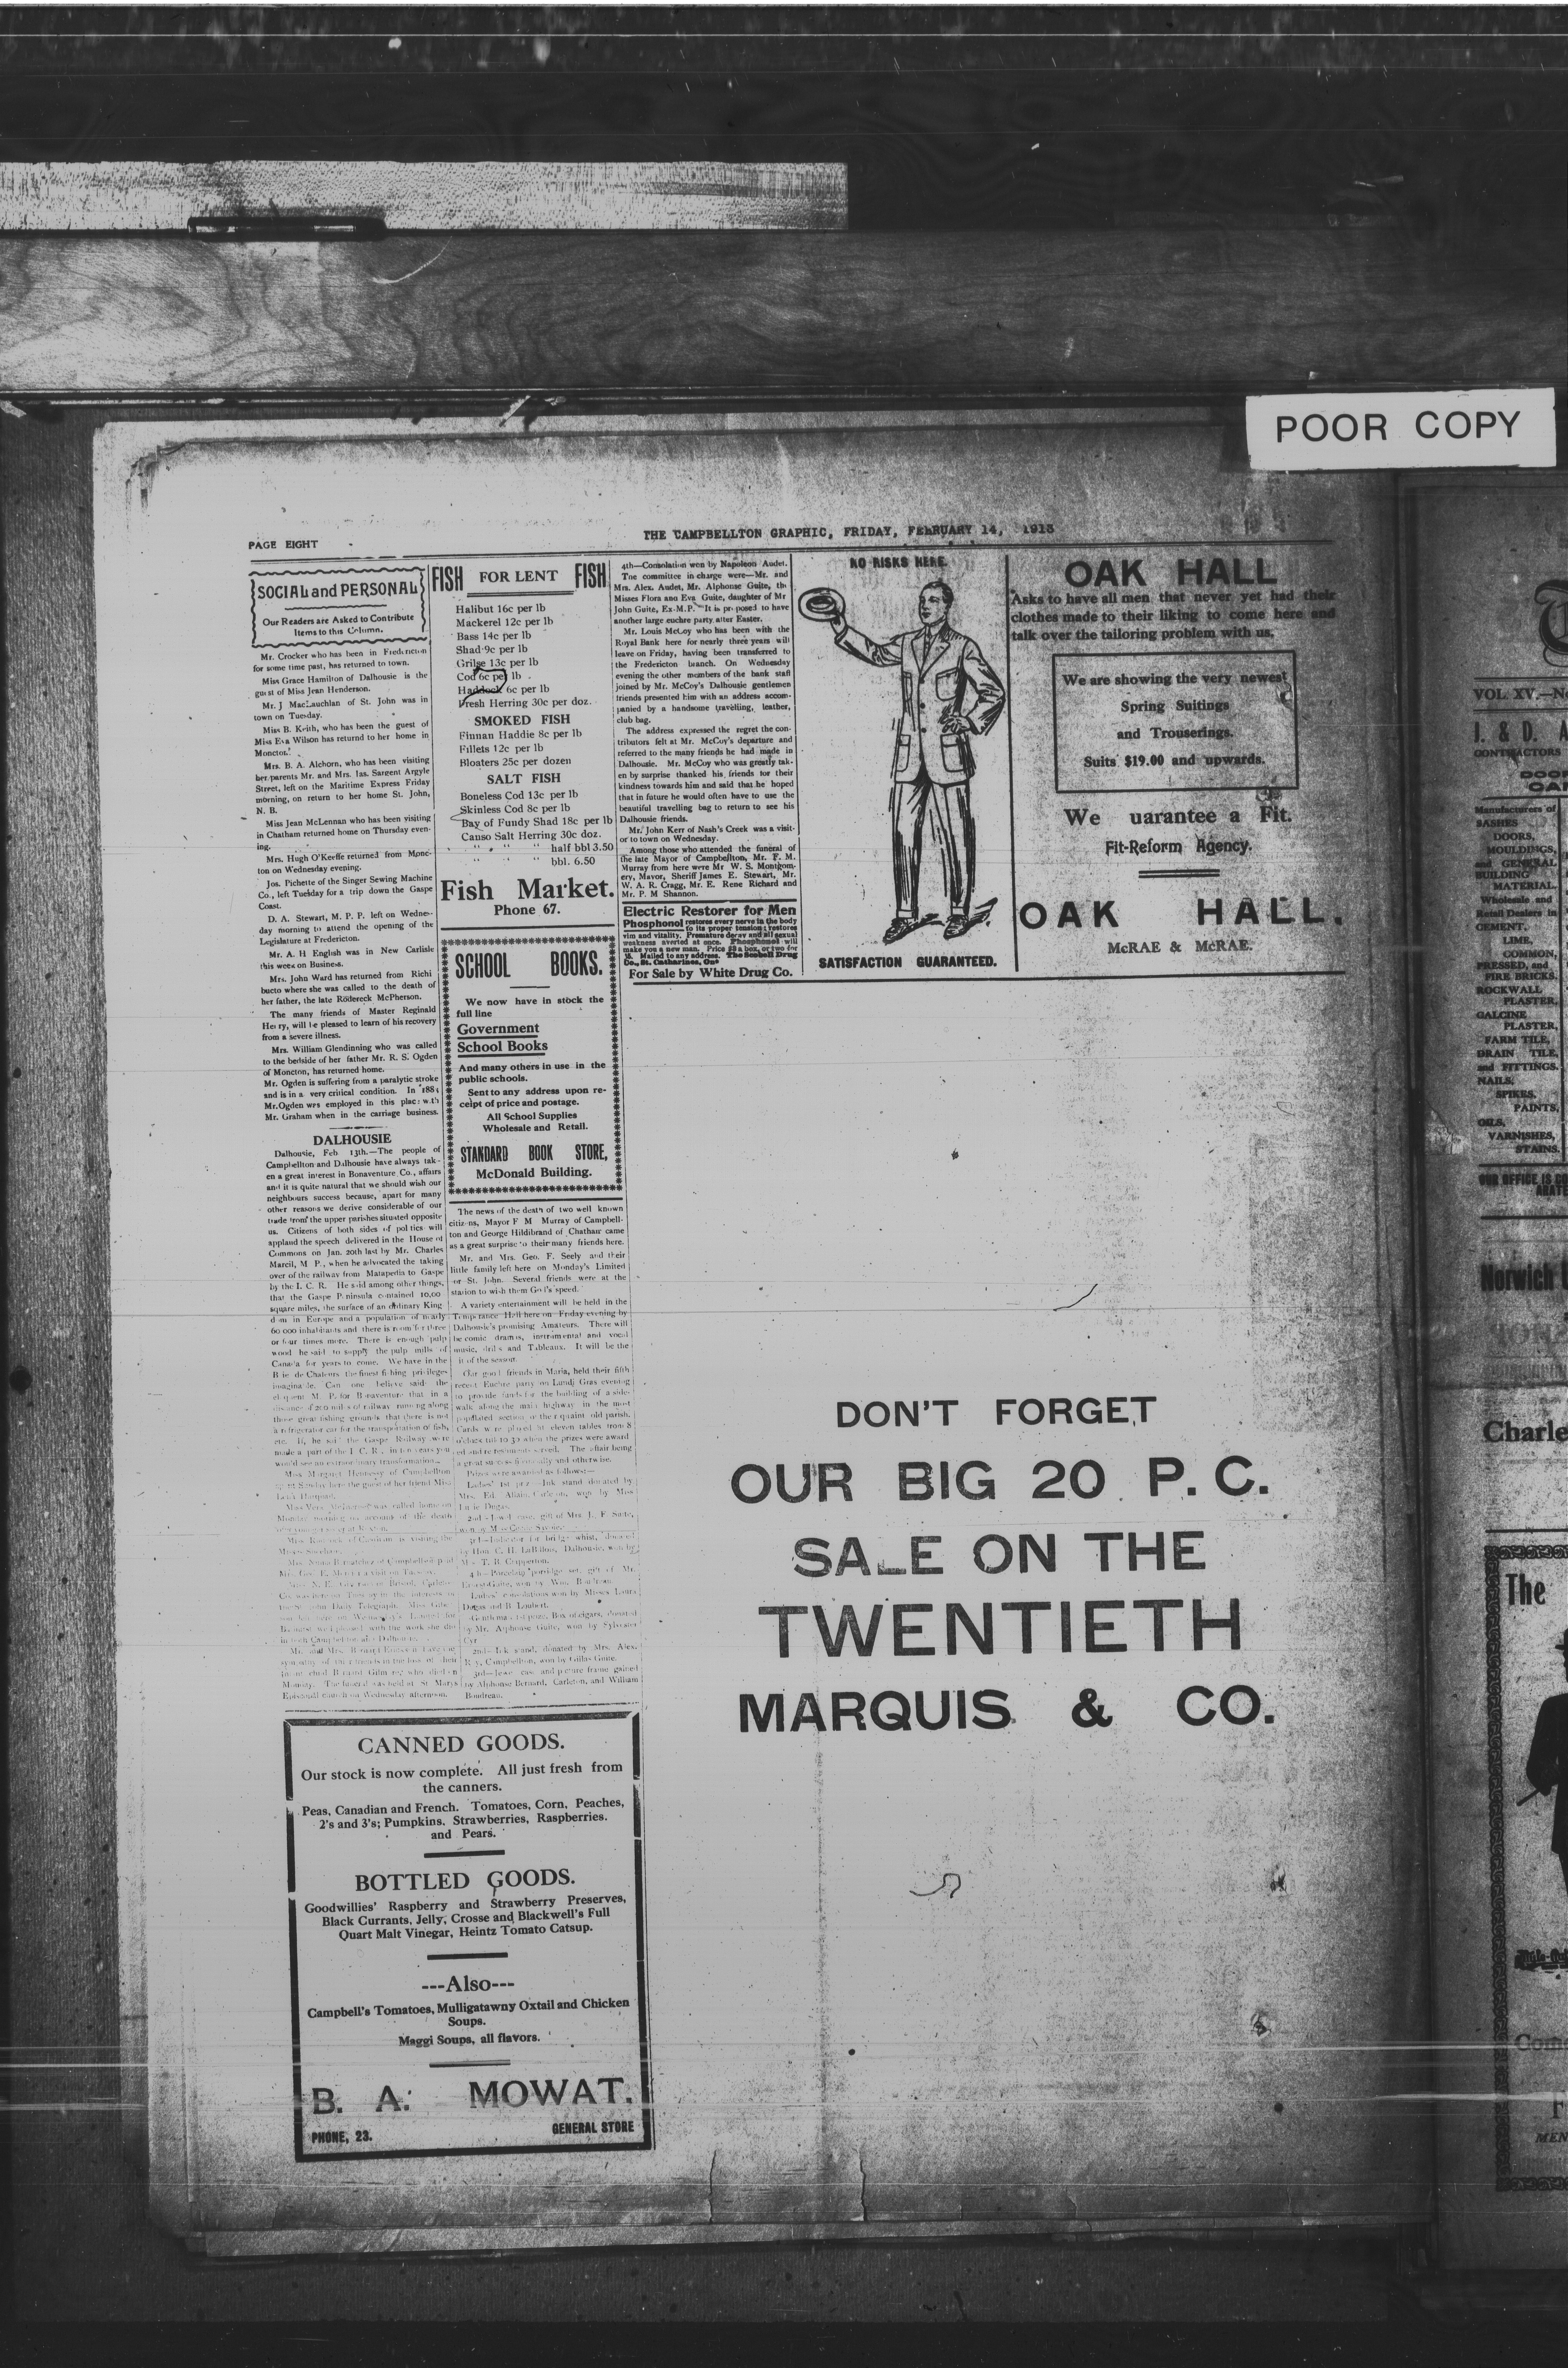 POOR COPY
PAGE EIGHT
THE CAMPBELLTON GRAPHIC, FRIDAY, FEBRUARY 14, 1913
SOCIAL and PERSONAL
Our Readers are Asked to Contribute
Items to this Column.
Mr. Crocker who has been in Fredericton
for some time past, has returned to town.
Miss Grace Hamilton of Dalhousie is the
guest of Miss Jean Henderson.
Mr. J MacLauchlan of St. John was in
town on Tuesday.
Miss B. Keith, who has been the guest of
Miss Eva Wilson has returnd to her home in
Moncton.
Mrs. B. A. Alchorn, who has been visiting
her parents Mr. and Mrs. Jas. Sargent Argyle
Street, left on the Maritime Express Friday
morning, on return to her home St. John,
N. B.
Miss Jean McLennan who has been visiting
in Chatham returned home on Thursday even-
ing.
Mrs. Hugh O'Keeffe returned from Monc-
ton on Wednesday evening.
Jos. Pichette of the Singer Sewing Machine
Co., left Tuesday for a trip down the Gaspe
Coast.
D. A. Stewart, M. P. P. left on Wednes-
day morning to attend the opening of the
Legislature at Fredericton.
Mr. A. H English was in New Carlisle
this week on Business.
Mrs. John Ward has returned from Richi
bucto where she was called to the death of
her father, the late Rodereck McPherson.
The many friends of Master Reginald
Henry, will be pleased to learn of his recovery
from a severe illness.
Mrs. William Glendinning who was called
to the bedside of her father Mr. R. S. Ogden
of Moncton, has returned home.
Mr. Ogden is suffering from a paralytic stroke
and is in a very critical condition. In 1885
Mr.Ogden was employed in this place with
Mr. Graham when in the carriage business.
DALHOUSIE
Dalhousie, Feb 13th.—The people of
Campbellton and Dalhousie have always tak-
en a great interest in Bonaventure Co., affairs
and it is quite natural that we should wish our
neighbours success because, apart for many
other reasons we derive considerable of our
trade from the upper parishes situated opposite
us. Citizens of both sides of politics will
applaud the speech delivered in the House of
Commons on Jan. 20th last by Mr. Charles
Marcil, M P., when he advocated the taking
over of the railway from Matapedia to Gaspe
by the I. C. R. He said among other things,
that the Gaspe Peninsula contained 10,00
square miles, the surface of an ordinary King
dom in Europe and a population of nearly
60 000 inhabitants and there is room for three
or four times more. There is enough pulp
wood he said to supply the pulp mills of
Canada for years to come. We have in the
Baie de Chaleurs the finest fishing privileges
imaginable. Can one believe said the
eloquent M. P. for Bonaventure that in a
distance of 200 miles of railway running along
those great fishing grounds that there is not
a refrigerator car for the transportation of fish,
etc. If, he said the Gaspe Railway were
made a part of the I. C. R., in ten years you
would see an extraordinary transformation.
Miss Margaret Hennessy of Campbellton
spent Sunday here the guest of her friend Miss
was called home on
Monday morning on account of the death
is visiting the
of Campbellton paid
Daily Telegraph.
here on Wednesday's Limited for
with the work she did
in both Campbellton and Dalhousie.
Mr. and Mrs.
sympathy of their friends in the loss of their
who died on
Monday. The funeral was held at St Marys
Episcopal church on Wednesday afternoon.
FISH FOR LENT FISH
Halibut 16c per lb
Mackerel 12c per lb
Bass 14c per lb
Shad 9c per lb
Grilse 13c per lb
Cod 6c per lb
Haddock 6c per lb
Fresh Herring 30c per doz.
SMOKED FISH
Finnan Haddie 8c per lb
Fillets 12c per lb
Bloaters 25c per dozen
SALT FISH
Boneless Cod 13c per lb
Skinless Cod 8c per lb
Bay of Fundy Shad 18c per lb
Canso Salt Herring 30c doz.
" " " half bbl 3.50
" " " bbl. 6.50
Fish Market.
Phone 67.
SCHOOL BOOKS.
We now have in stock the
full line
Government
School Books
And many others in use in the
public schools.
Sent to any address upon re-
ceipt of price and postage.
All School Supplies
Wholesale and Retail.
STANDARD BOOK STORE,
McDonald Building.
The news of the death of two well known
citizens, Mayor F M Murray of Campbell-
ton and George Hildibrand of Chatham came
as a great surprise to their many friends here.
Mr. and Mrs. Geo. F. Seely and their
little family left here on Monday's Limited
for St. John. Several friends were at the
station to wish them God's speed.
A variety entertainment will be held in the
Temperance Hall here on Friday evening by
Dalhousie's promising Amateurs. There will
be comic dramas, instrumental and vocal
music, drills and Tableaux. It will be the
hit of the season.
Our good friends in Maria, held their fifth
recent Euchre party on Lundi Gras evening
to provide funds for the building of a side-
walk along the main highway in the most
populated section of their quaint old parish.
Cards were played at eleven tables from 8
o'clock till 10 30 when the prizes were award
ed and refreshments served. The affair being
a great success financially and otherwise.
Prizes were awarded as follows:—
Ladies' 1st prize—Ink stand donated by
Mrs. Ed. Allain, Carleton, won by Miss
Dugas.
2nd—Jewel case, gift of Mrs. J.
won by Miss
3rd—Indicator for bridge whist, donated
by Hon. C. H. LaBillois, Dalhousie, won by
Mrs. T. B. Cripperton.
4th—Porcelain porridge set, gift of Mr.
Ernest Guite, won by Wm. Boudreau.
Ladies' consolations won by Misses Laura
Dugas and B. Loubert.
Gentlemans 1st prize, Box of cigars, donated
by Mr. Alphonse Guite, won by Sylvester
Cyr
2nd—Ink stand, donated by Mrs. Alex.
Roy, Campbellton, won by Gillas Guite.
3rd—Jewel case and picture frame gained
by Alphonse Bernard, Carleton, and William
Boudreau.
4th—Consolation won by Napoleon Audet.
The committee in charge were—Mr. and
Mrs. Alex. Audet, Mr. Alphonse Guite, the
Misses Flora and Eva Guite, daughter of Mr
John Guite, Ex-M.P. It is proposed to have
another large euchre party after Easter.
Mr. Louis McCoy who has been with the
Royal Bank here for nearly three years will
leave on Friday, having been transferred to
the Fredericton branch. On Wednesday
evening the other members of the bank staff
joined by Mr. McCoy's Dalhousie gentlemen
friends presented him with an address accom-
panied by a handsome travelling, leather,
club bag.
The address expressed the regret the con-
tributors felt at Mr. McCoy's departure and
referred to the many friends he had made in
Dalhousie. Mr. McCoy who was greatly tak-
en by surprise thanked his friends for their
kindness towards him and said that he hoped
that in future he would often have to use the
beautiful travelling bag to return to see his
Dalhousie friends.
Mr. John Kerr of Nash's Creek was a visit-
or to town on Wednesday.
Among those who attended the funeral of
the late Mayor of Campbellton, Mr. F. M.
Murray from here were Mr W. S. Montgom-
ery, Mayor, Sheriff James E. Stewart, Mr.
W. A. R. Cragg, Mr. E. Rene Richard and
Mr. P. M Shannon.
Electric Restorer for Men
Phosphonol restores every nerve in the body
to its proper tension; restores
vim and vitality. Premature decay and all sexual
weakness averted at once. Phosphonol will
make you a new man. Price $3 a box, or two for
$5. Mailed to any address. The Scobell Drug
Co., St. Catharines, Ont
For Sale by White Drug Co.
NO RISKS HERE.
SATISFACTION GUARANTEED.
OAK HALL
Asks to have all men that never yet had their
clothes made to their liking to come here and
talk over the tailoring problem with us.
We are showing the very newest
Spring Suitings
and Trouserings.
Suits $19.00 and upwards.
We uarantee a Fit.
Fit-Reform Agency.
OAK HALL.
McRAE & McRAE.
DON'T FORGET
OUR BIG 20 P. C.
SALE ON THE
TWENTIETH
MARQUIS & CO.
CANNED GOODS.
Our stock is now complete. All just fresh from
the canners.
Peas, Canadian and French. Tomatoes, Corn, Peaches,
2's and 3's; Pumpkins, Strawberries, Raspberries.
and Pears.
BOTTLED GOODS.
Goodwillies' Raspberry and Strawberry Preserves,
Black Currants, Jelly, Crosse and Blackwell's Full
Quart Malt Vinegar, Heintz Tomato Catsup.
---Also---
Campbell's Tomatoes, Mulligatawny Oxtail and Chicken
Soups.
Maggi Soups, all flavors.
B. A. MOWAT.
PHONE, 23.
GENERAL STORE
VOL XV.—No
J. & D. A
CONTRACTORS
DOOR
Manufacturers of
SASHES
DOORS,
MOULDINGS,
and GENERAL
BUILDING
MATERIAL.
Wholesale and
Retail Dealers in
CEMENT,
LIME,
COMMON,
PRESSED, and
FIRE BRICKS,
ROCKWALL
PLASTER,
CALCINE
PLASTER,
FARM TILE,
DRAIN TILE,
and FITTINGS.
NAILS,
SPIKES,
PAINTS,
OILS,
VARNISHES,
STAINS.
OUR OFFICE IS
Norwich
Charle
The
MEN